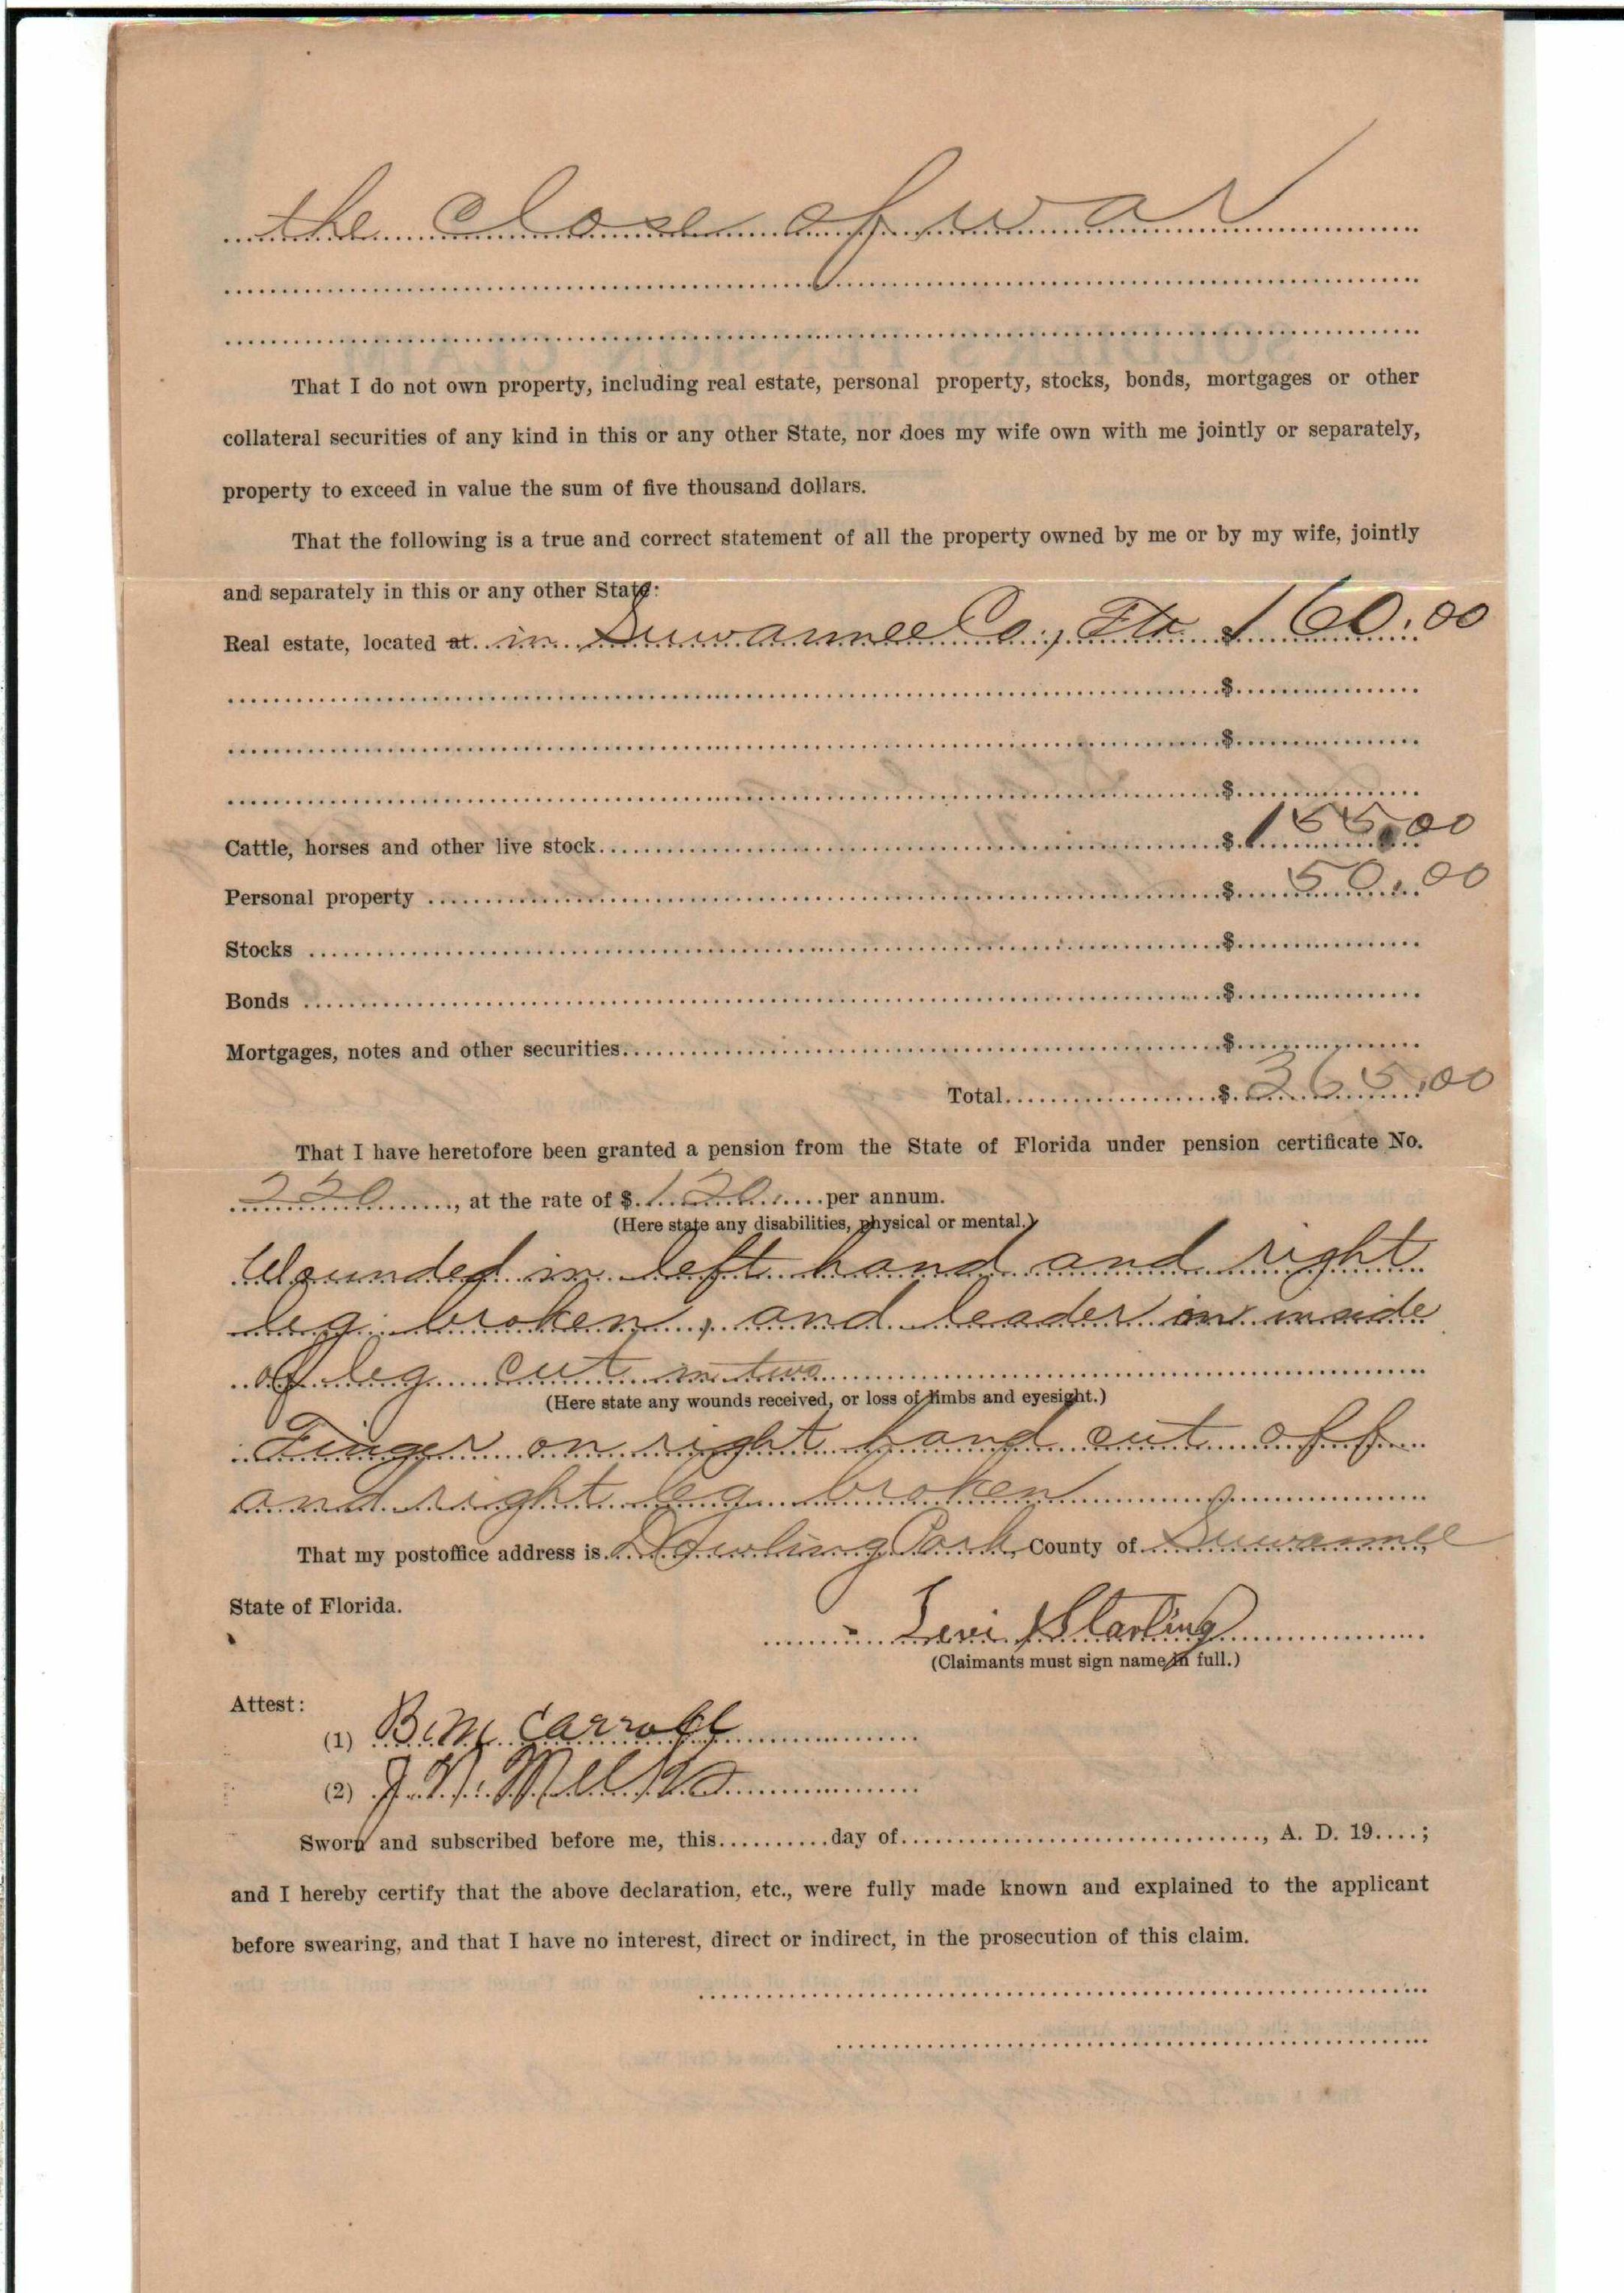 the close of war
That I do not own property, including real estate, personal property, stocks, bonds, mortgages or other
collateral securities of any kind in this or any other State, nor does my wife own with me jointly or separately,
property to exceed in value the sum of five thousand dollars.
That the following is a true and correct statement of all the property owned by me or by my wife, jointly
and separately in this or any other State:
Real estate, located at in Suwannee Co., Fla $ 160.00
$
$
$
Cattle, horses and other live stock $ 155.00
Personal property $ 50.00
Stocks $
Bonds $
Mortgages, notes and other securities $
Total $ 365.00
That I have heretofore been granted a pension from the State of Florida under pension certificate No.
220, at the rate of $ 120 per annum.
(Here state any disabilities, physical or mental.)
Wounded in left hand and right
leg broken, and leader on inside
of leg cut in two
(Here state any wounds received, or loss of limbs and eyesight.)
Finger on right hand cut off
and right leg broken
That my postoffice address is Dowling Park, County of Suwannee
State of Florida.
Levi Starling
(Claimants must sign name in full.)
Attest:
(1) B. M. Carroll
(2) J. N.
Sworn and subscribed before me, this day of , A. D. 19 ;
and I hereby certify that the above declaration, etc., were fully made known and explained to the applicant
before swearing, and that I have no interest, direct or indirect, in the prosecution of this claim.